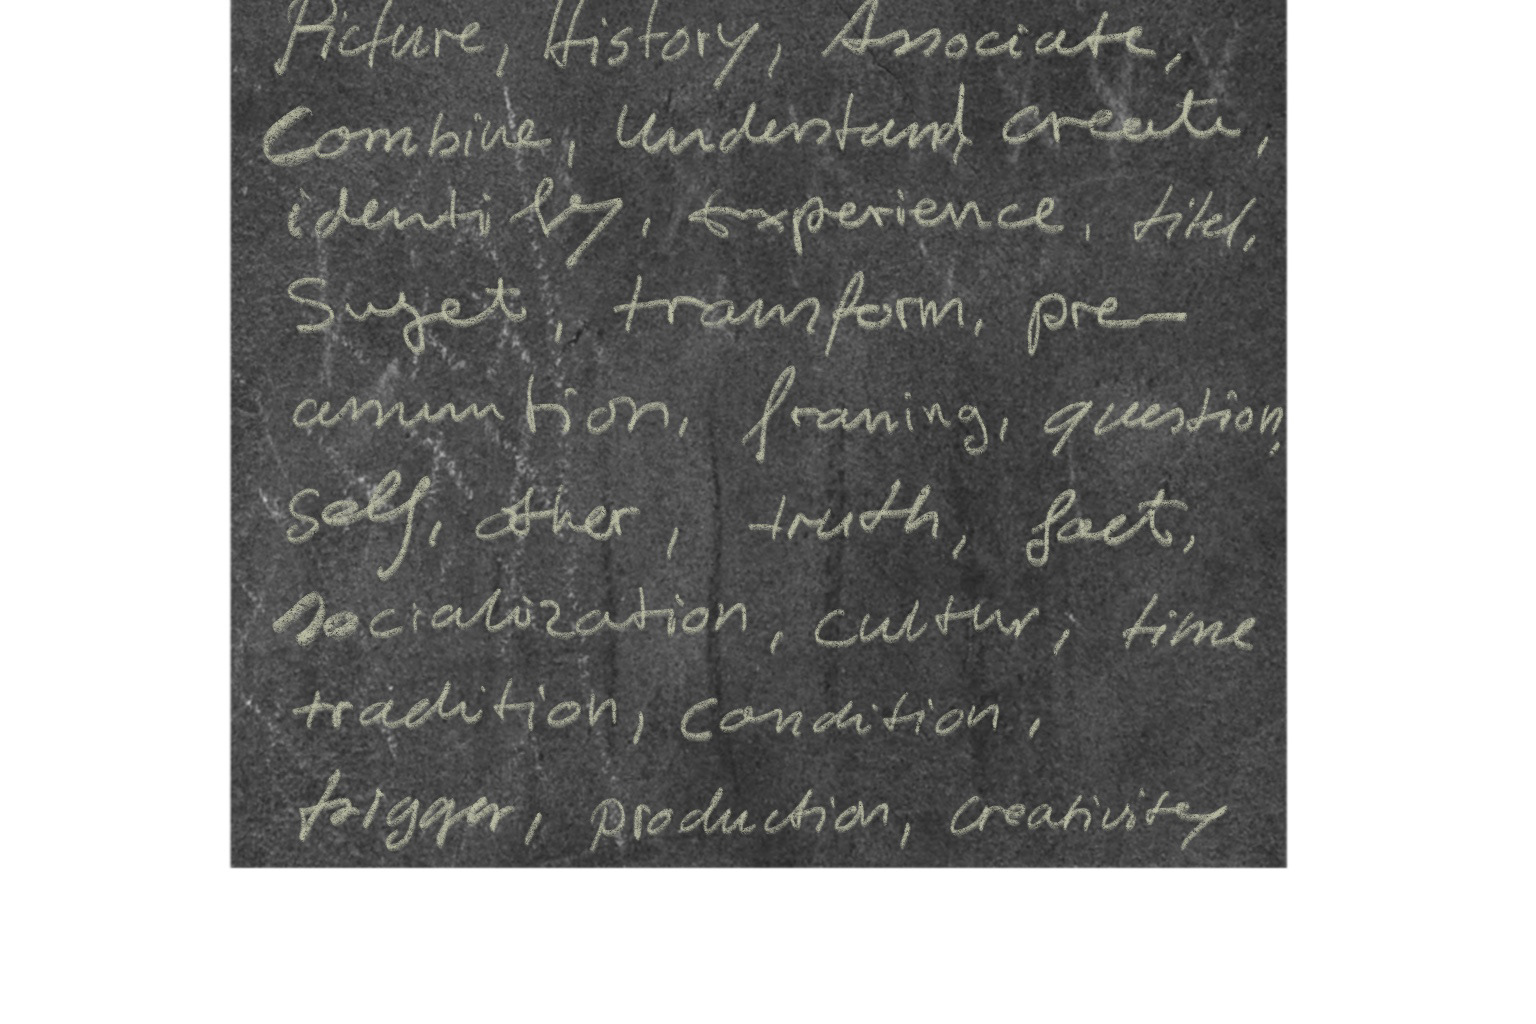 Picture, History, Associate,
Combine, Understand, create,
identify, Experience, titel,
Suzet, transform, pre-
assumtion, framing, question,
Self, other, truth, fact,
socialization, cultur, time
tradition, condition,
trigger, production, creativity